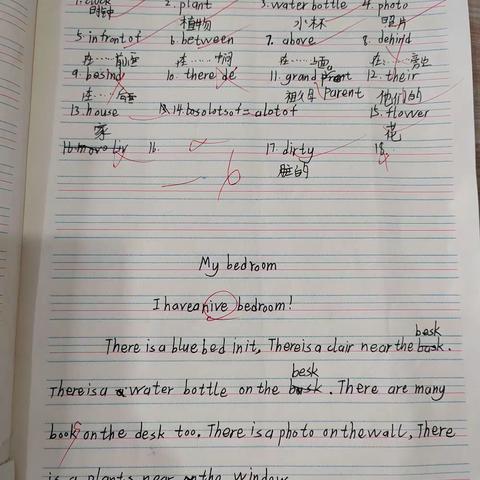 1. clock 2. plant 3. water bottle 4. photo
时钟 植物 水杯 照片
5. in front of 6. between 7. above 8. dehind
在……前面 在……中间 在……上面 在……旁边
9. besind 10. there de 11. grand parent 12. their
在……后面 祖父母 parent 他们的
13. house 14. lotsof = alotof 15. flower
家 花
16. 17. dirty 18.
脏的
-6
My bedroom
I have a nive bedroom!
There is a blue bed in it, There is a clair near the besk.
There is a water bottle on the besk. There are many
book on the desk too. There is a photo on the wall, There
is a plants near on the window